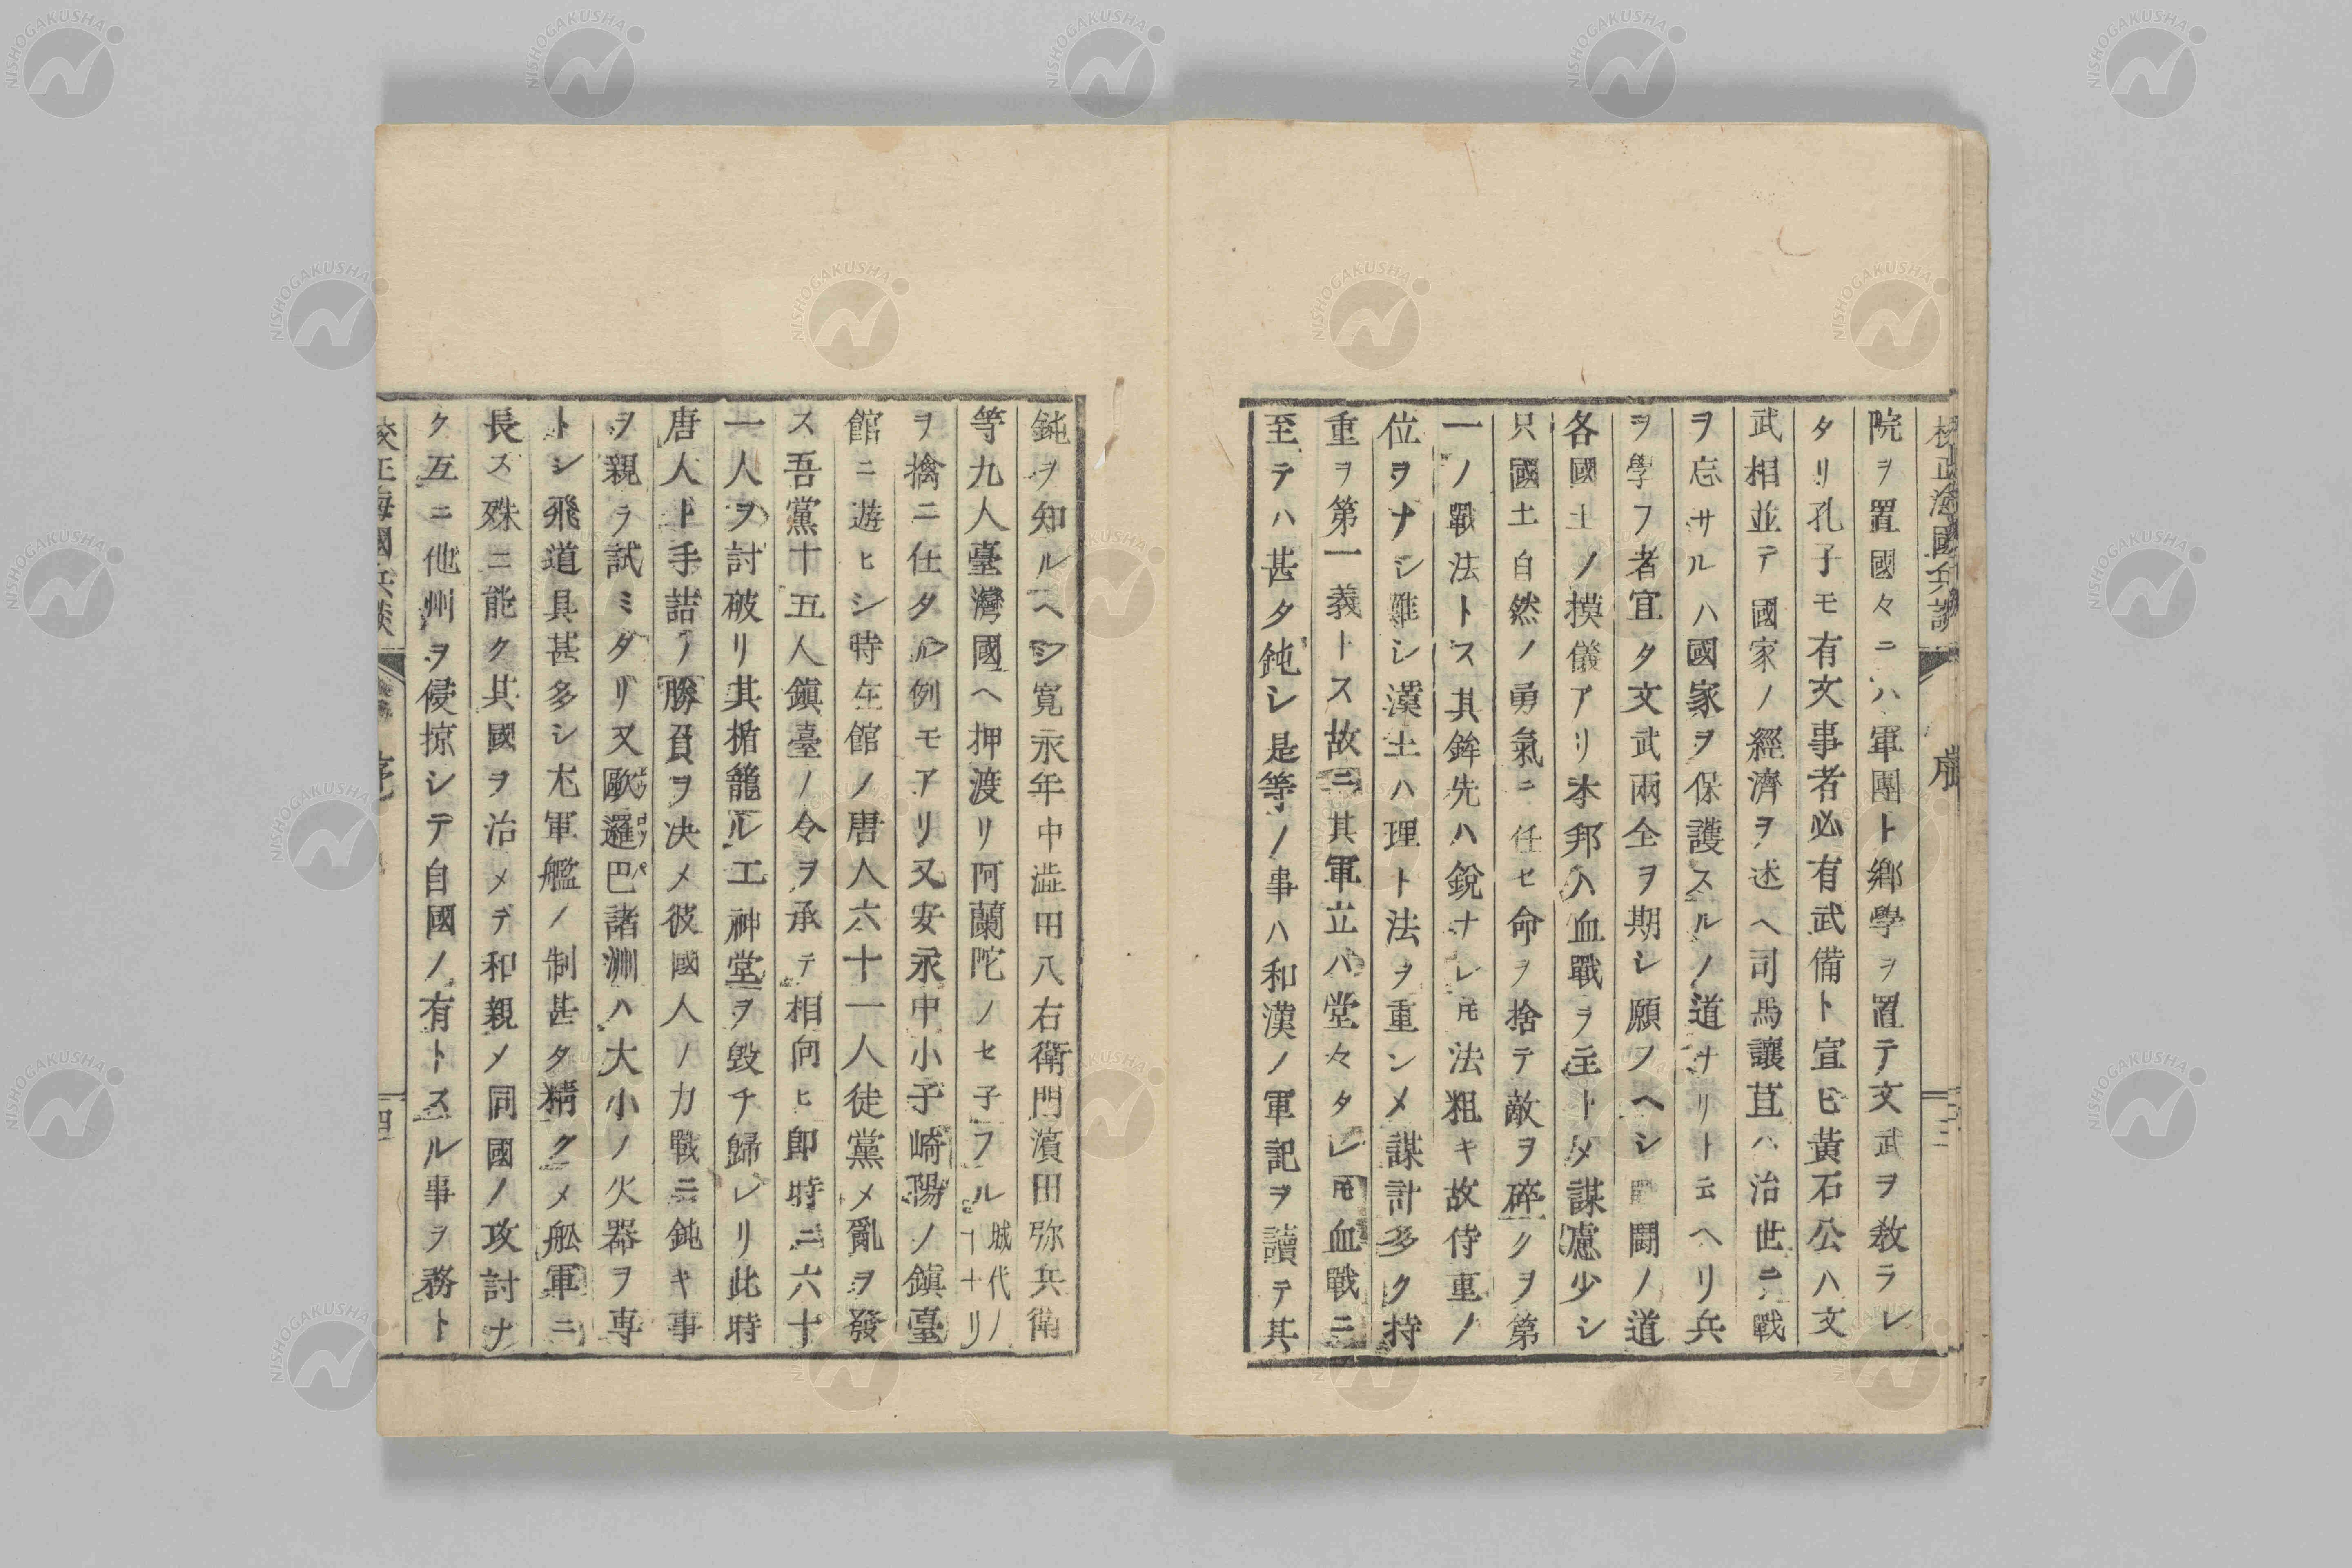 校正海國兵談 序 三
院ヲ置國々ニハ軍團ト鄕學ヲ置テ文武ヲ敎ラレ
タリ孔子モ有文事者必有武備ト宣ヒ黃石公ハ文
武相並テ國家ノ經濟ヲ述ヘ司馬讓苴ハ治世ニ戰
ヲ忘サルハ國家ヲ保護スルノ道ナリト云ヘリ兵
ヲ學フ者宜タ文武兩全ヲ期シ願フヘシ闘ノ道
各國土ノ摸儀アリ本邦ハ血戰ヲ主トタ謀慮少シ
只國土自然ノ勇氣ニ任セ命ヲ捨テ敵ヲ碎クヲ第
一ノ戰法トス其鉾先ハ銳ナレ𪜈法粗キ故侍重ノ
位ヲナシ難シ漢土ハ理ト法ヲ重ンメ謀計多ク持
重ヲ第一義トス故ニ其軍立ハ堂々タレ𪜈血戰ニ
至テハ甚タ鈍シ是等ノ事ハ和漢ノ軍記ヲ讀テ其
鈍ヲ知ルヘシ寬永年中澁田八右衛門濱田弥兵衛
等九人臺灣國ヘ押渡リ阿蘭陀ノセ子フル城代ノ𪜀ナリ
ヲ擒ニ仕タル例モアリ又安永中小子崎陽ノ鎭臺
館ニ遊ヒシ時在館ノ唐人六十一人徒黨メ亂ヲ發
ス吾黨十五人鎭臺ノ令ヲ承テ相向ヒ即時ニ六十
一人ヲ討破リ其楯籠ル工神堂ヲ毀チ歸レリ此時
唐人ト手詰ノ勝負ヲ决メ彼國人ノ力戰ニ鈍キ事
ヲ親ラ試ミタリ又歐邏巴諸洲ハ大小ノ火器ヲ専
トシ飛道具甚多シ尤軍艦ノ制甚タ精クメ舩軍ニ
長ス殊ニ能ク其國ヲ治メテ和親メ同國ノ攻討ナ
ク互ニ他州ヲ侵掠シテ自國ノ有トスル事ヲ務ト
校正海國兵談 序 四